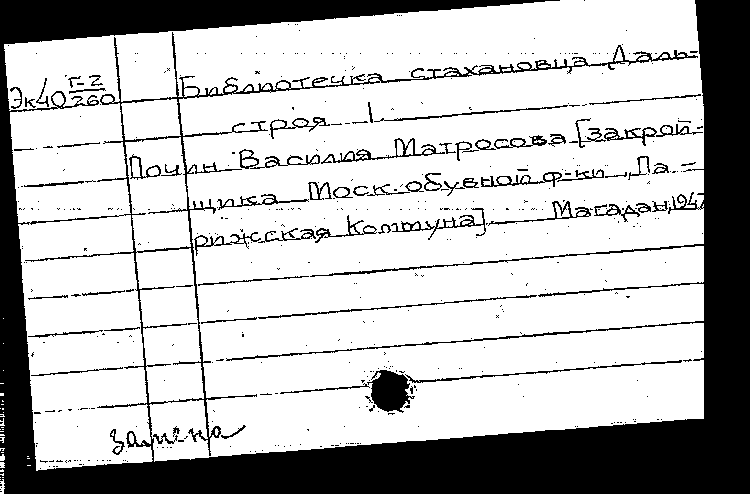 Эк40 Г-2/260
Библиотечка стахановца Даль=
строя 1.
Почин Василия Матросова [закрой-
щика Моск. обувной ф-ки „Па=
рижская Коммуна]. Магадан, 1947
замена